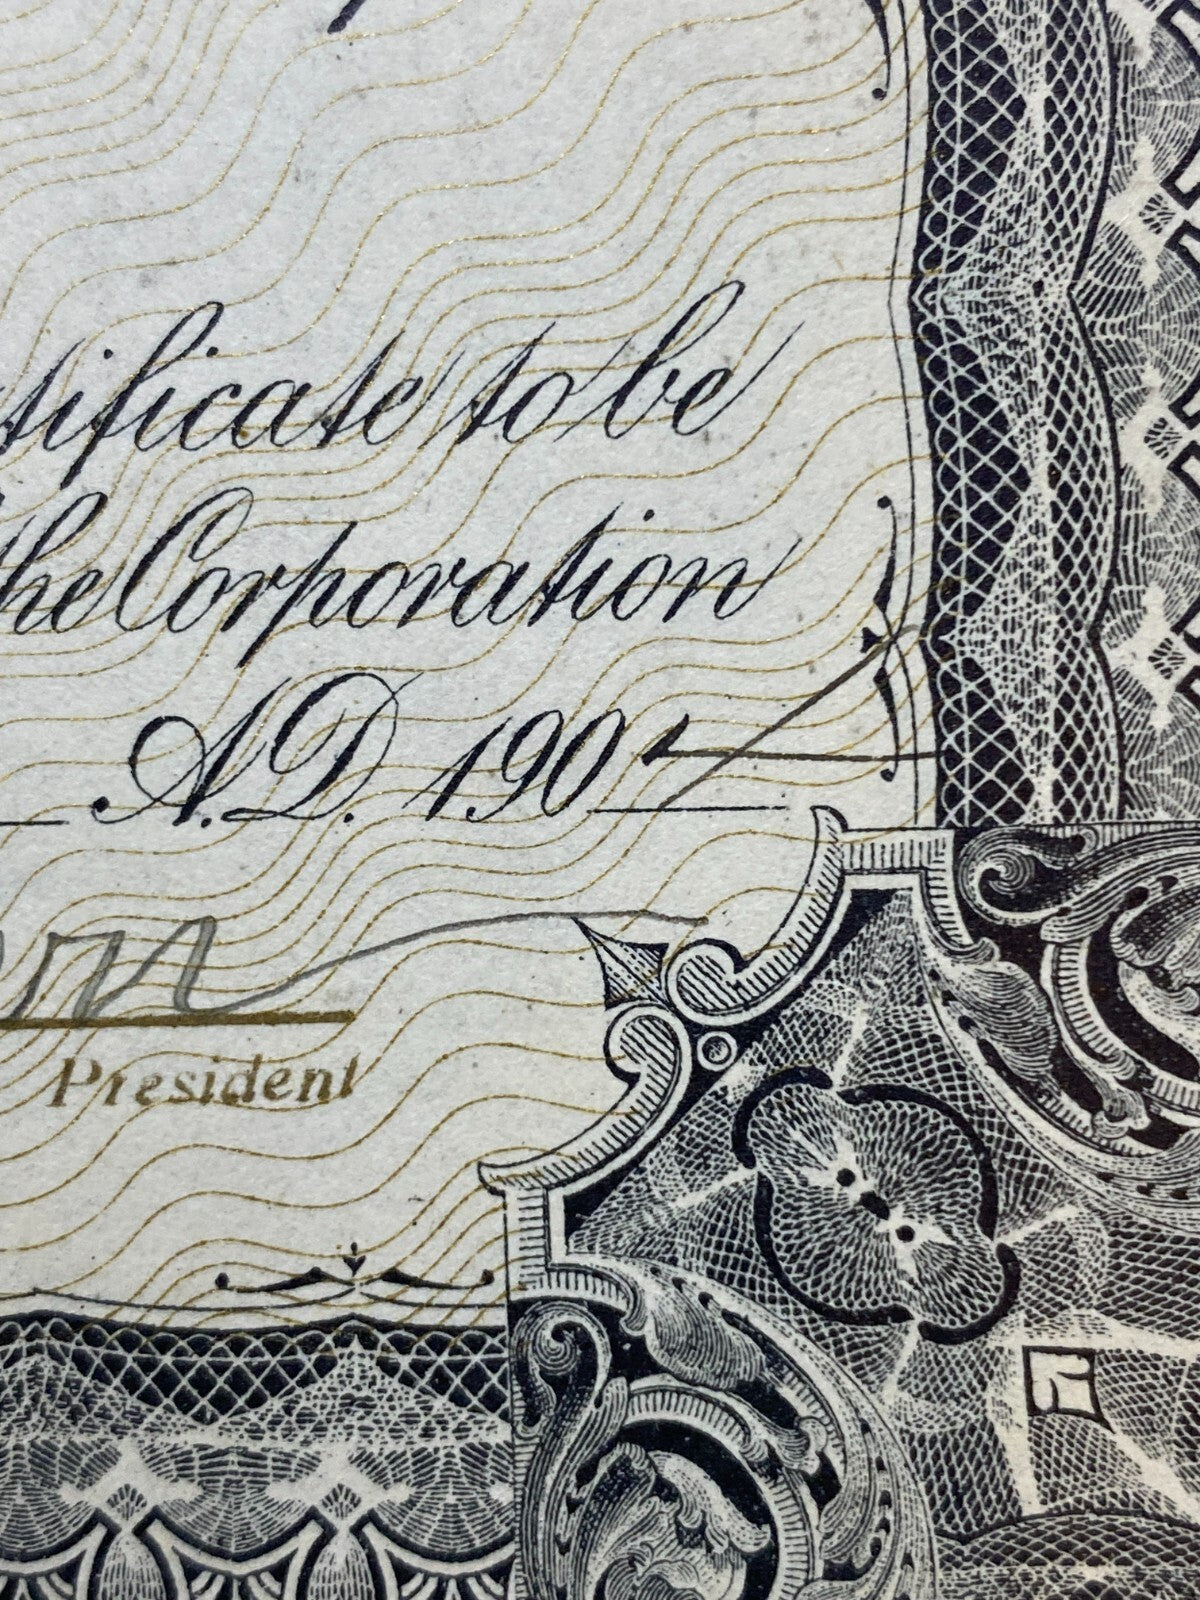 tificate to be
the Corporation
A.D. 190
President